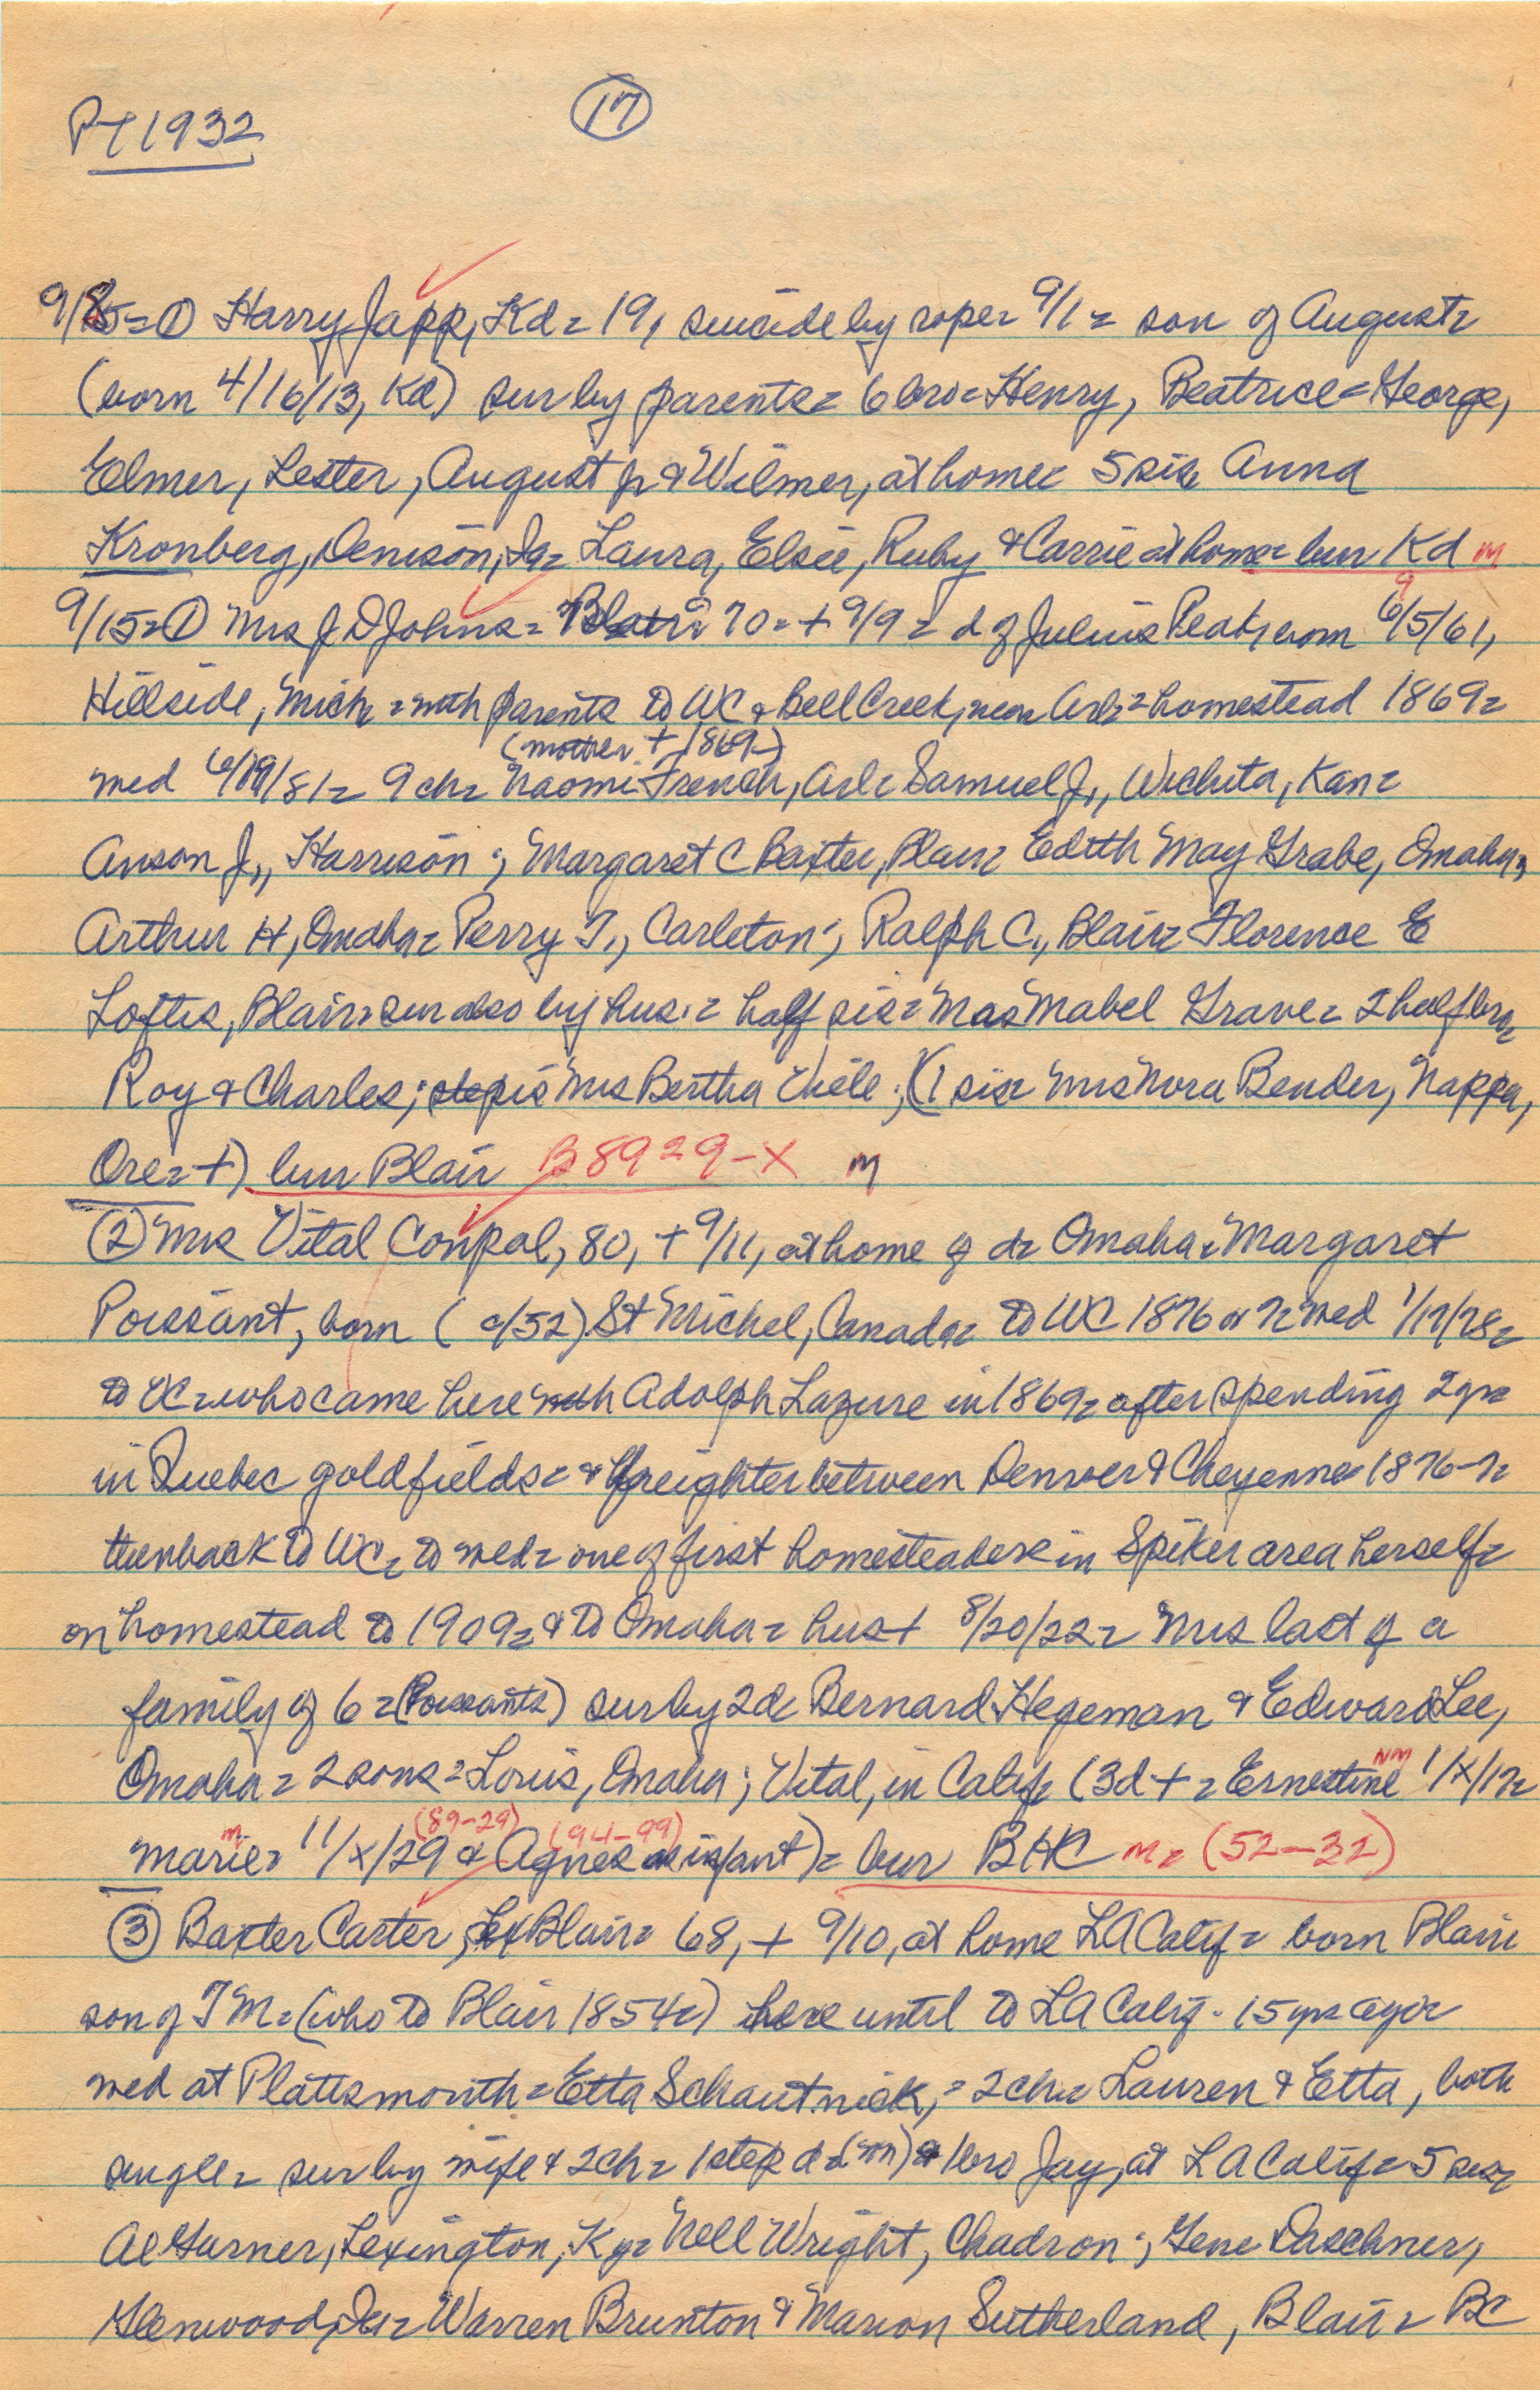 PT 1932
17
9/8= ① Harry Japp, Kd= 19, suicide by rope= 9/1= son of August=
(born 4/16/13, Kd) sur by parents= 6 bro= Henry, Beatrice= George,
Elmer, Lester, August jr & Wilmer, at home= 5 sis= Anna
Kronberg, Denison, Ia= Laura, Elsie, Ruby & Carrie at home= bur Kd m
9/15= ① Mrs J D Johns= Blair= 70= + 9/9= d of Julius Peak, born 6/5/61,
9
Hillside, Mich= with parents to WC & Bell Creek, near Arl= homestead 1869=
(mother + 1869)
wed 6/19/81= 9 ch= Naomi French, Arl= Samuel J., Wichita, Kan=
Anson J., Harrison; Margaret C Baxter, Blair= Edith May Grabe, Omaha=
Arthur H, Omaha= Perry T., Carleton; Ralph C., Blair= Florence E
Loftis, Blair= sur also by hus.= half sis= Mrs Mabel Grave= 2 half bro=
Roy & Charles; stepsis Mrs Bertha Thiele; (1 sis= Mrs Nora Bender, Nappa,
Ore= +) bur Blair B 8929-X m
② Mrs Vital Compal, 80, + 9/11, at home of d= Omaha= Margaret
Poissant, born ( c/52) St Michel, Canada= to WC 1876 or 7= wed 1/17/78=
to VC= who came here with Adolph Lazure in 1869= after spending 2 yrs
in Quebec goldfields= & freighter between Denver & Cheyenne= 1876-7=
then back to WC= to wed= one of first homesteaders in Spiker area herself=
on homestead to 1909= & to Omaha= hus + 8/20/22= Mrs last of a
family of 6= (Poissants) sur by 2 d= Bernard Hegeman & Edward Lee,
Omaha= 2 sons= Louis, Omaha; Vital, in Calif= (3 d += Ernestine NM 1/X/17=
m (89-29) (94-99)
Marie= 11/X/29 & Agnes as infant)= bur BHC m= (52-32)
③ Baxter Carter, ex Blair= 68, + 9/10, at home LA Calif= born Blair
son of T M= (who to Blair 1854=) here until to LA Calif- 15 yrs ago=
wed at Plattsmouth= Etta Schautnick,= 2 ch= Lauren & Etta, both
single= sur by wife & 2 ch= 1 step d= (nn) & 1 bro Jay, at LA Calif= 5 sis=
Al Turner, Lexington, Ky= Nell Wright, Chadron; Gene Daschner,
Glenwood, Ia= Warren Brunton & Marion Sutherland, Blair= BC